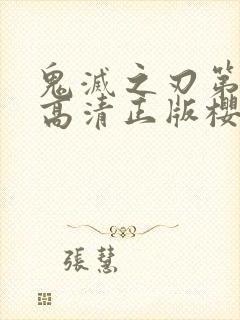 鬼滅之刃第
高清正版櫻
張慧